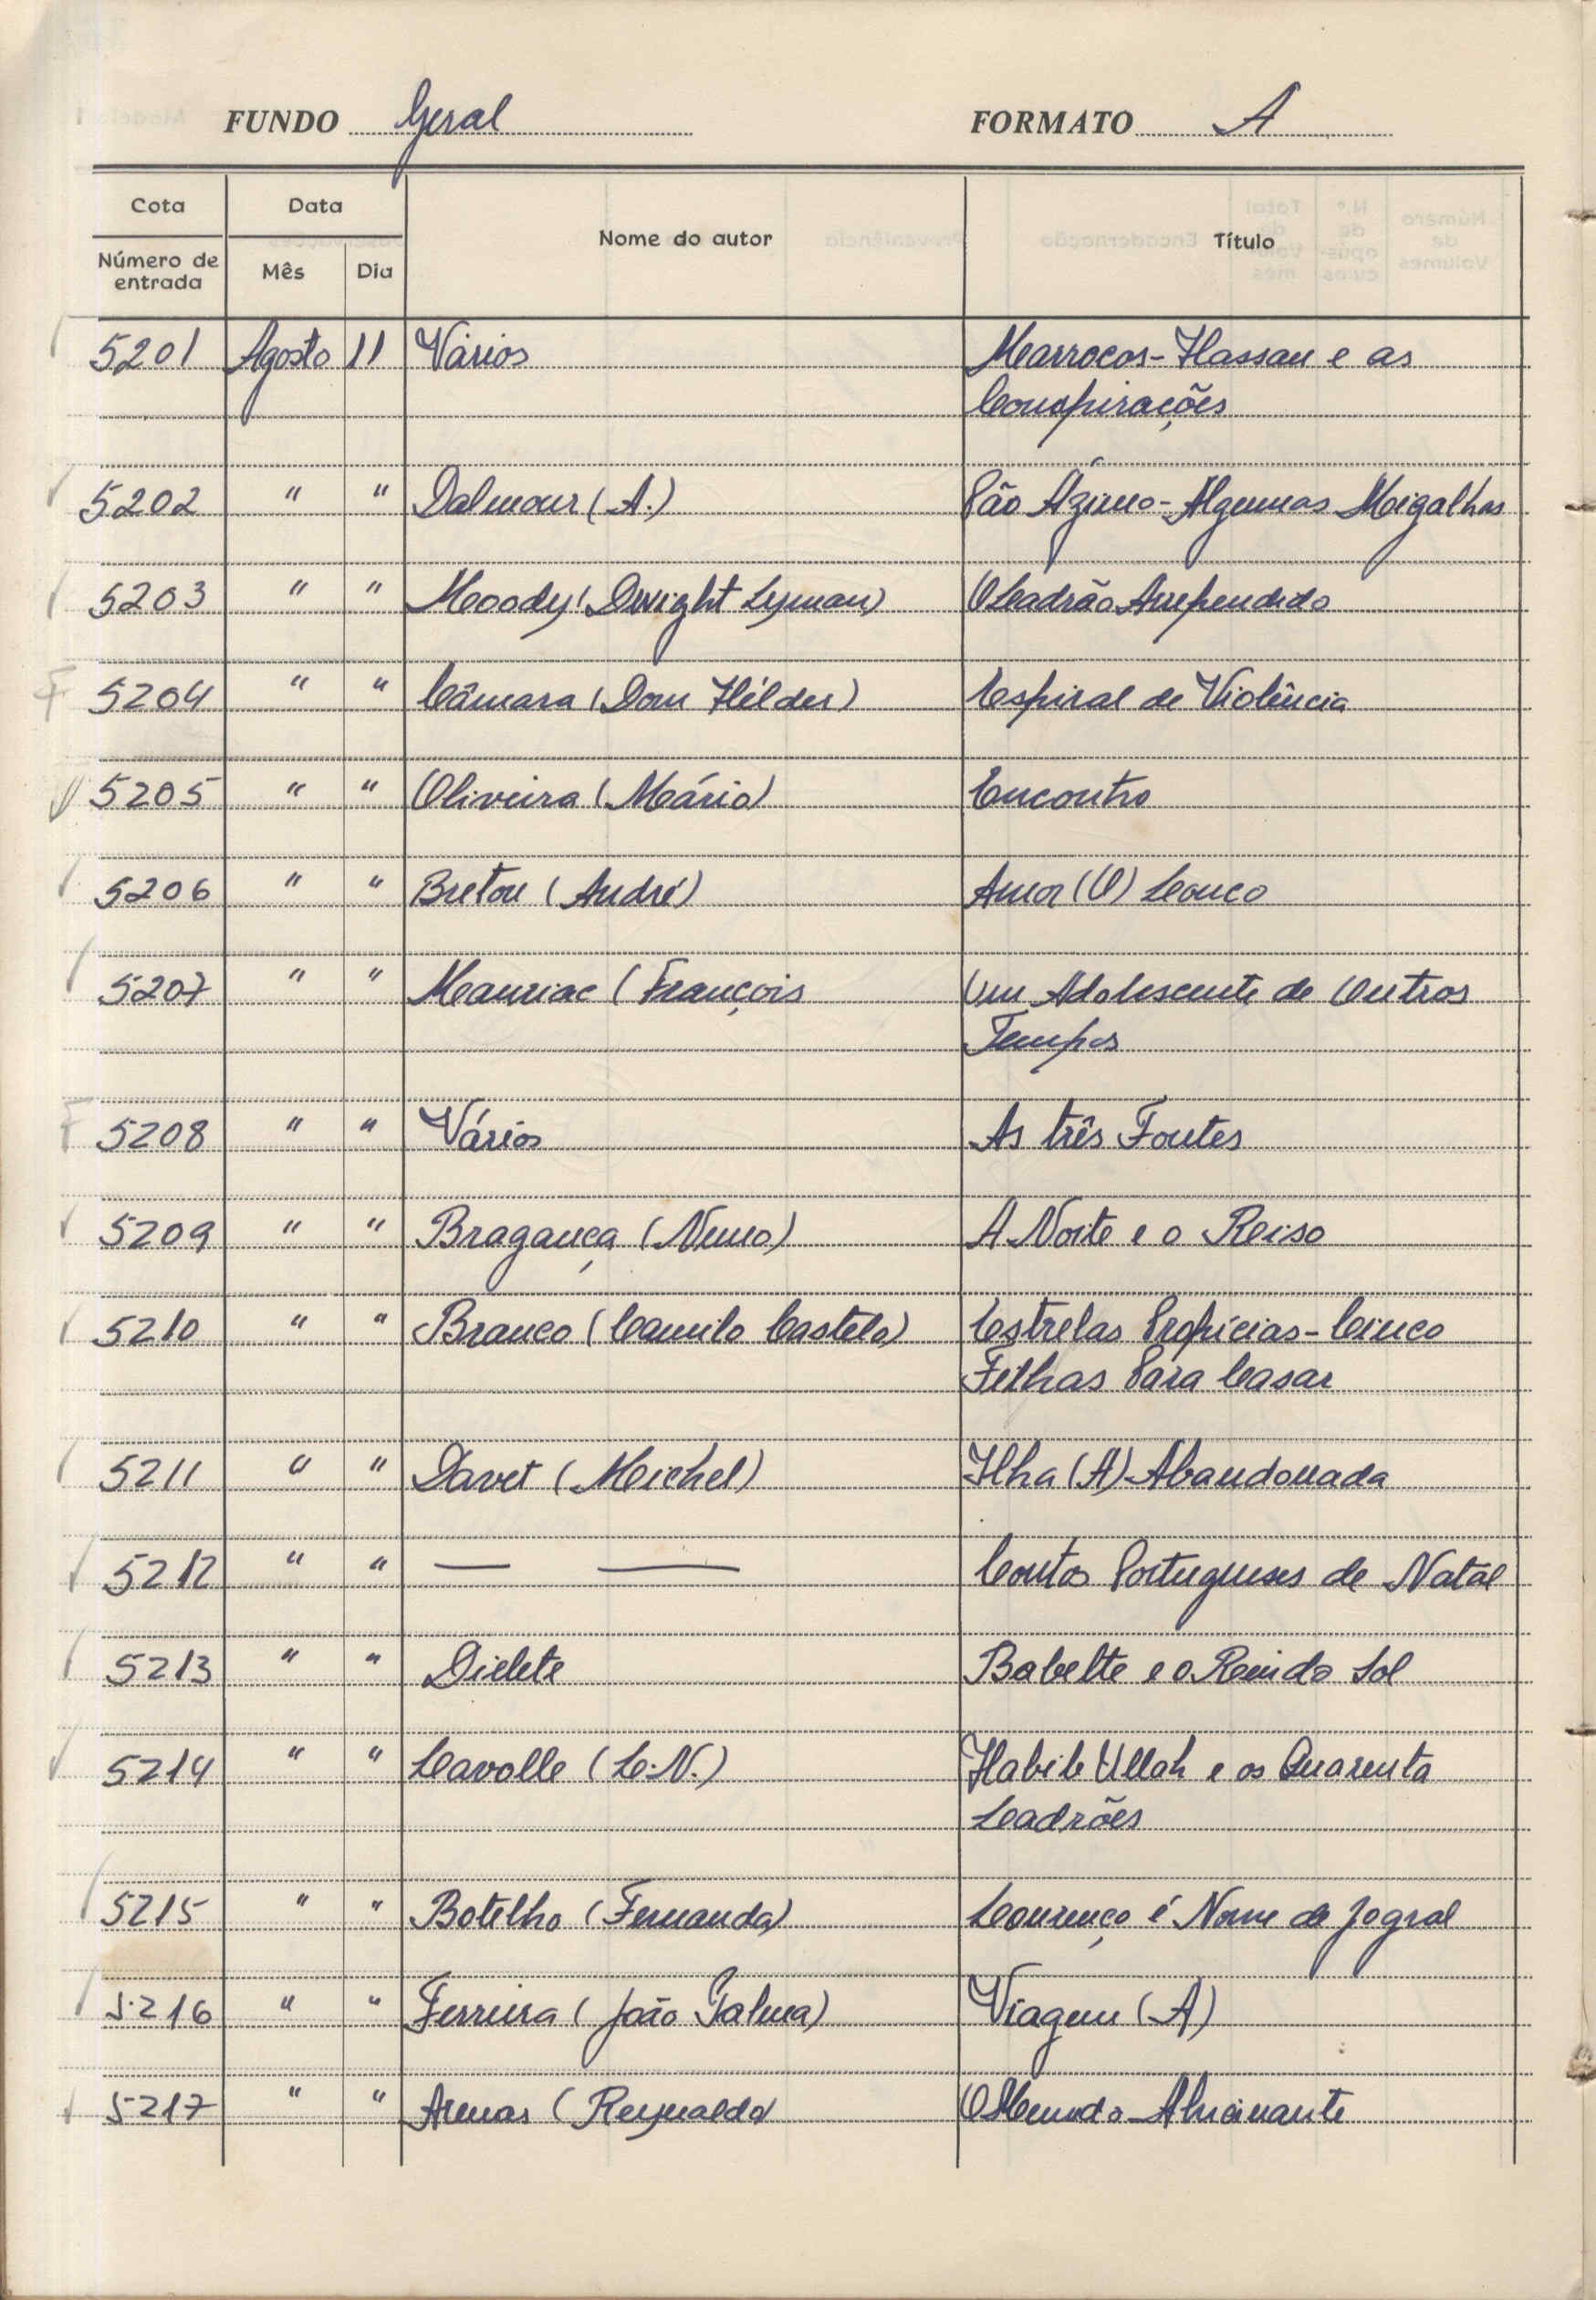 FUNDO Geral FORMATO A
Cota Data Nome do autor Título
Número de entrada Mês Dia
5201 Agosto 11 Vários Marrocos - Hassan e as
Conspirações
5202 " " Dalmour (A.) Pão Ázimo - Algumas Migalhas
5203 " " Moody (Dwight Lyman) O Ladrão Arrependido
5204 " " Câmara (Dom Hélder) Espiral de Violência
5205 " " Oliveira (Mário) Encontro
5206 " " Breton (André) Amor (O) Louco
5207 " " Mauriac (François Um Adolescente de Outros
Tempos
5208 " " Vários As três Fontes
5209 " " Bragança (Nuno) A Noite e o Reiso
5210 " " Branco (Camilo Castelo) Estrelas Propícias - Cinco
Filhas Para Casar
5211 " " Davet (Michel) Ilha (A) Abandonada
5212 " " — — Contos Portugueses de Natal
5213 " " Dielete Babette e o Rei do Sol
5214 " " Lavolle (L.N.) Habib Ullah e os Quarenta
Ladrões
5215 " " Botelho (Fernanda) Lourenço é Nome de Jogral
5216 " " Ferreira (João Palma) Viagem (A)
5217 " " Arenas (Reynaldo O Mundo Alucinante